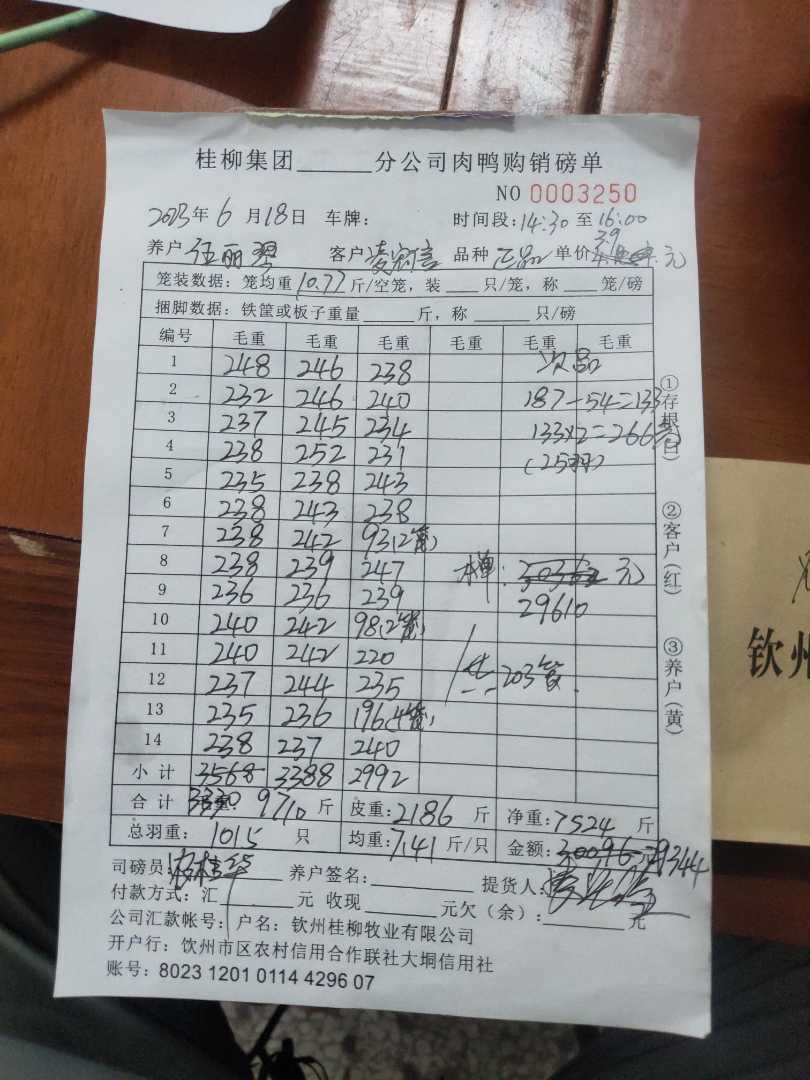 桂柳集团______分公司肉鸭购销磅单
NO 0003250
2023年 6 月 18 日 车牌: 时间段: 14:30 至 16:00
养户 伍丽 客户 凌宏信 品种 正品 单价 3.9 元
笼装数据: 笼均重 10.77 斤/空笼, 装____只/笼, 称____笼/磅
捆脚数据: 铁筐或板子重量______斤, 称______只/磅
编号 毛重 毛重 毛重 毛重 毛重 毛重
1 248 246 238 次品
2 232 246 240 187-54=133
3 237 245 234 133×2=266元
4 238 252 231 (25羽)
5 235 238 243
6 238 243 238
7 238 242 93(2笼)
8 238 239 247 本单: 30362 元
9 236 236 239 29610
10 240 242 98(2笼)
11 240 242 220 共:203笼
12 237 244 235
13 235 236 196(4笼)
14 238 237 240
小计 3568 3388 2992
合计 3330 9710 斤 皮重: 2186 斤 净重: 7524 斤
总羽重: 1015 只 均重: 7.41 斤/只 金额: 30096 元 29344
司磅员: 养户签名: 提货人:
付款方式: 汇______元 收现______元欠(余): ______元
公司汇款帐号: 户名: 钦州桂柳牧业有限公司
开户行: 钦州市区农村信用合作联社大垌信用社
账号: 8023 1201 0114 4296 07
①存根(白)
②客户(红)
③养户(黄)
钦州